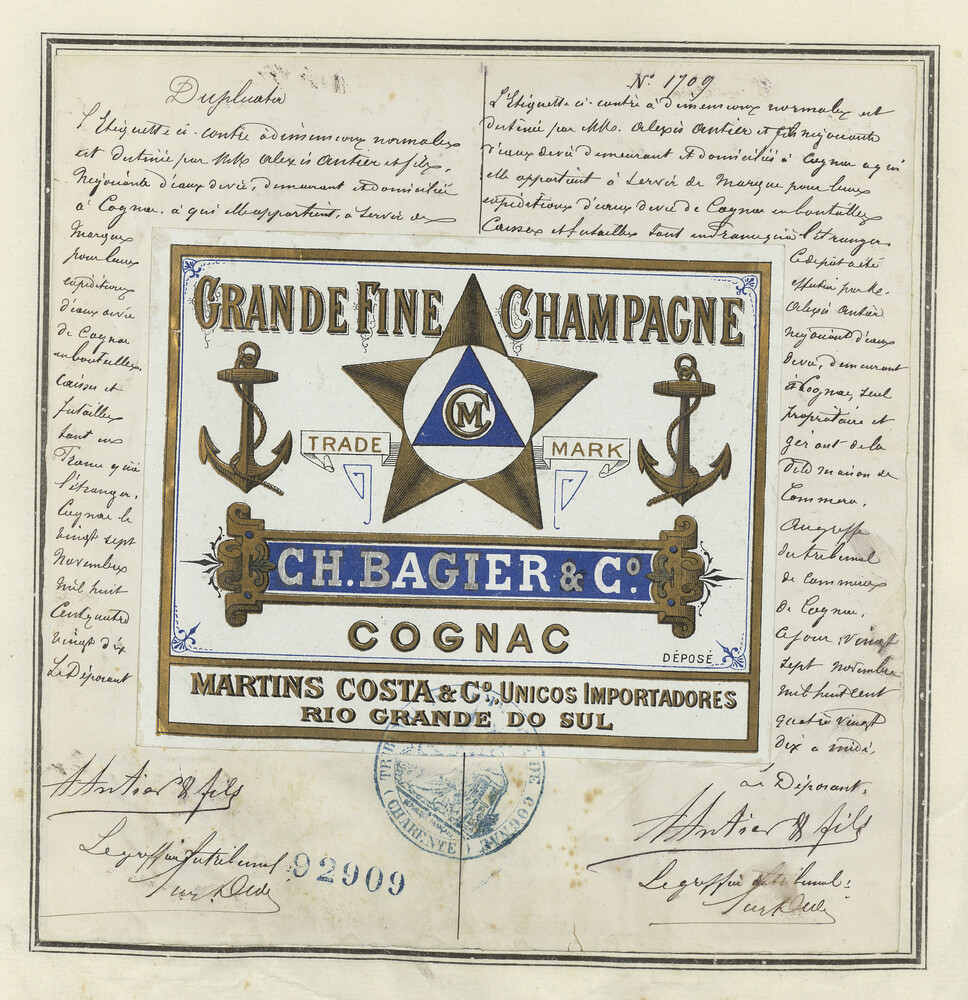 Duplicata
l'Etiquette ci-contre à dimensions normales
est destinée par MM. Alexis Antier et fils,
Négociants d'eaux de vie, demeurant et domiciliés
à Cognac, à qui elle appartient, à servir de
Marque
pour leurs
expéditions
d'eaux de vie
de Cognac
en bouteilles,
Caisses et
futailles
tant en
France qu'à
l'étranger.
Cognac le
vingt sept
Novembre
mil huit
Cent quatre
vingt dix
Le Déposant
A Antier & fils
Le greffier du tribunal
92909
N° 1709
L'Etiquette ci-contre à dimensions normales est
destinée par MM. Alexis Antier et fils négociants
d'eaux de vie demeurant et domiciliés à Cognac à qui
elle appartient à servir de Marque pour leurs
expéditions d'eaux de vie de Cognac en bouteilles
Caisses et futailles tant en France qu'à l'étranger
Ce dépôt a été
effectué par M.
Alexis Antier
négociant d'eaux
de vie, demeurant
à Cognac, seul
propriétaire et
gérant de la
dite maison de
Commerce.
Au greffe
du tribunal
de Commerce
de Cognac.
Ce jour vingt
sept novembre
mil huit cent
quatre vingt
dix à midi.
Le Déposant:
A Antier & fils
Le greffier du tribunal:
GRANDE FINE CHAMPAGNE
MC
TRADE MARK
CH. BAGIER & Cº.
COGNAC
DÉPOSÉ
MARTINS COSTA & Cº. UNICOS IMPORTADORES
RIO GRANDE DO SUL
DE COGNAC
(CHARENTE)